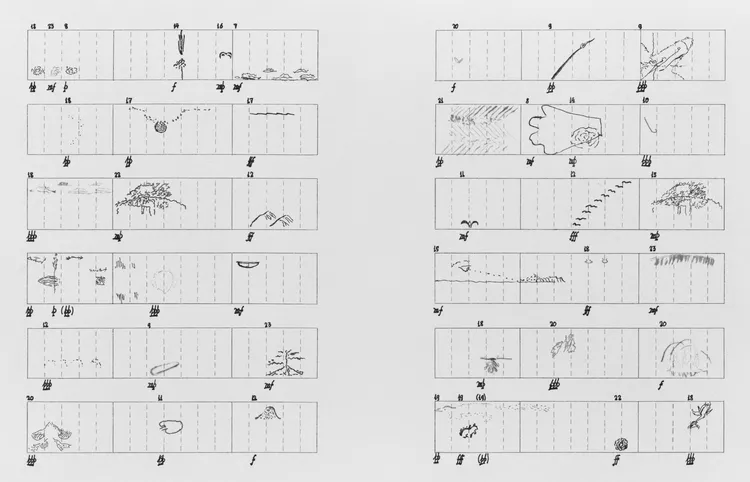 23 8 14 16 7
pp mf p f mp mf
18 17 17
pp pp
18 22 13
ppp mp ff
pp p (pp) ppp mf
12 9 23
ppp mf
20 11 12
ppp pp f
20 9 9
f pp ppp
21 8 14 10
pp mf ppp
11 12 15
mf fff mp
15 18 23
mf ff mf
18 20 20
mp ppp f
19 19 (19) 22 18
pp (pp) ff ppp